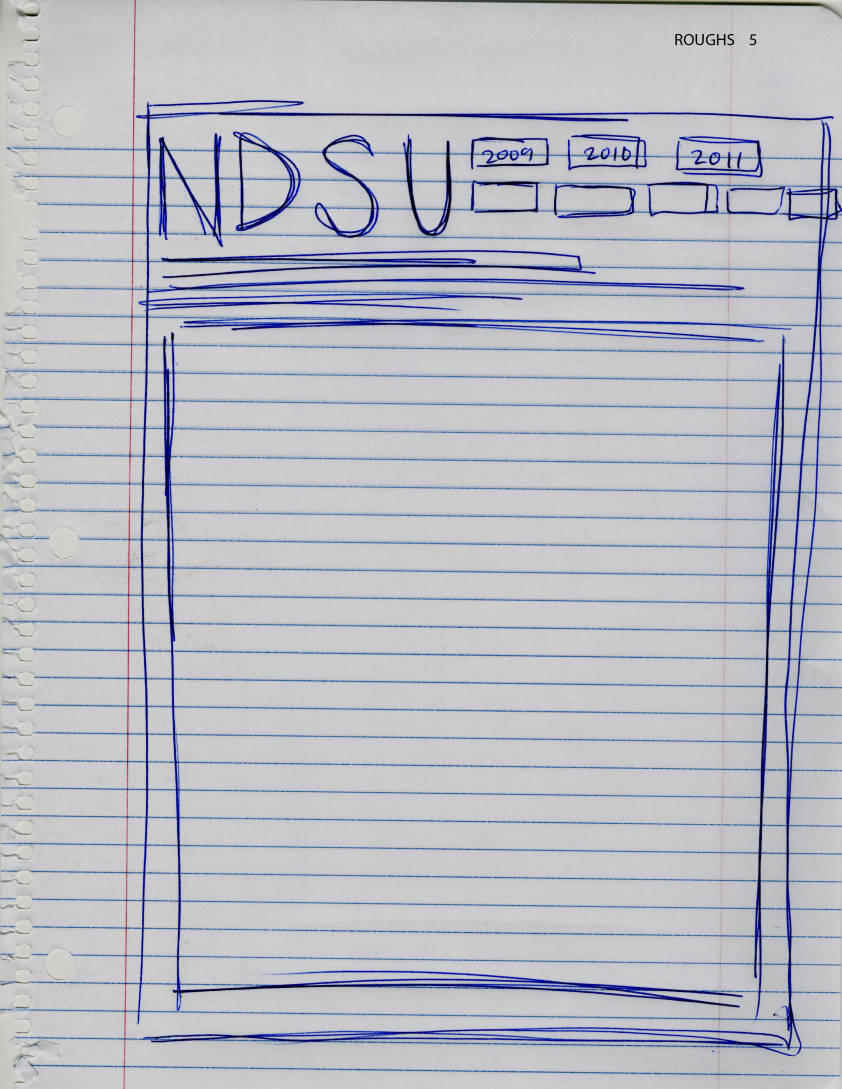 ROUGHS 5
NDSU 2009 2010 2011